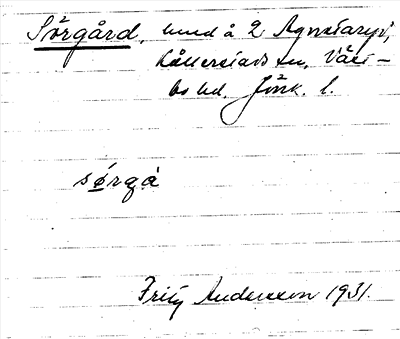 Sörgård, hmd å 2 Agnetaryd,
Kållerstads sn, Väst-
bo hd. Jönk. l.
sørgå
Fritz Andersson 1931.